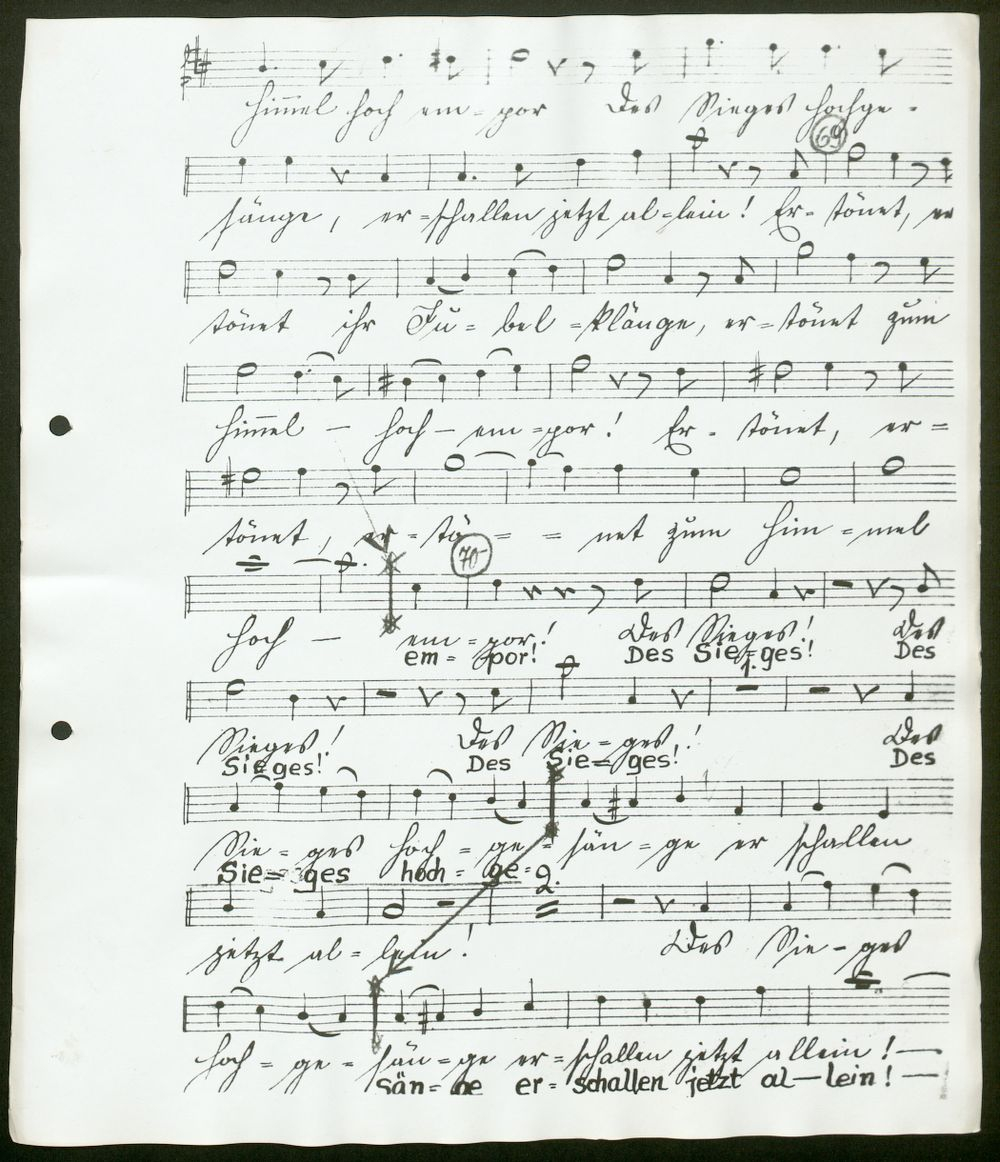 Himmel hoch em=por Des Sieges Hochge=
69
sänge, er=schallen jetzt al=lein! Er= tönet, er
tönet ihr Ju= bel =klänge, er=tönet zum
Himmel — hoch— em=por! Er= tönet, er=
tönet, er=tö = = net zum Him=mel
70
hoch — em=por! Des Sieges! Des
em= por! Des Sie=ges! Des
1.
Sieges! Des Sie=ges! Des
Sieges! Des Sie= ges! Des
Sie=ges hoch=ge= sän=ge er schallen
Sie= ges hoch= ge=
2.
jetzt al=lein! Des Sie=ges
hoch=ge=sän=ge er=schallen jetzt allein!—
Sän= ge er= schallen jetzt al—lein! —